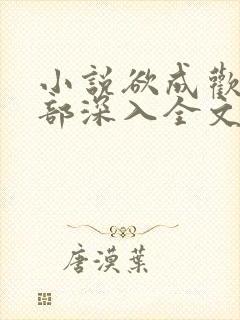 小說欲成歡
部深入全文
唐漠葉